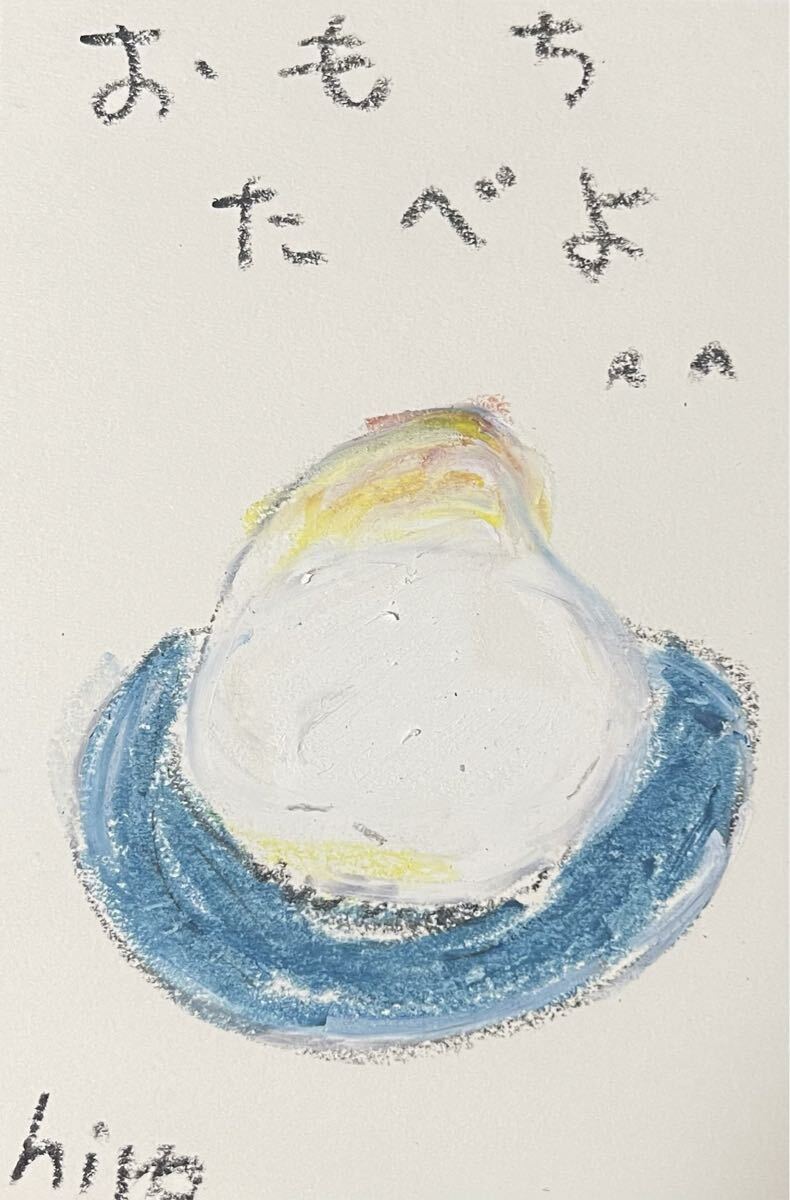 おもち
たべよ
hiro